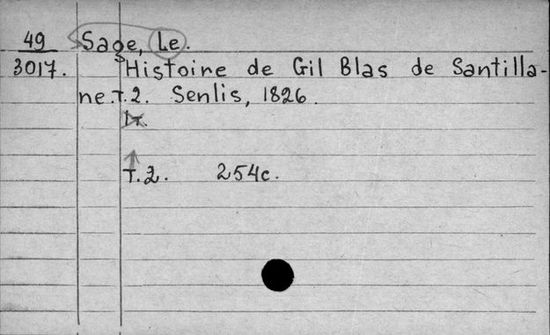 49 Sage, Le.
3017. Histoire de Gil Blas de Santilla-
ne. T.2. Senlis, 1826.
T.2. 254c.